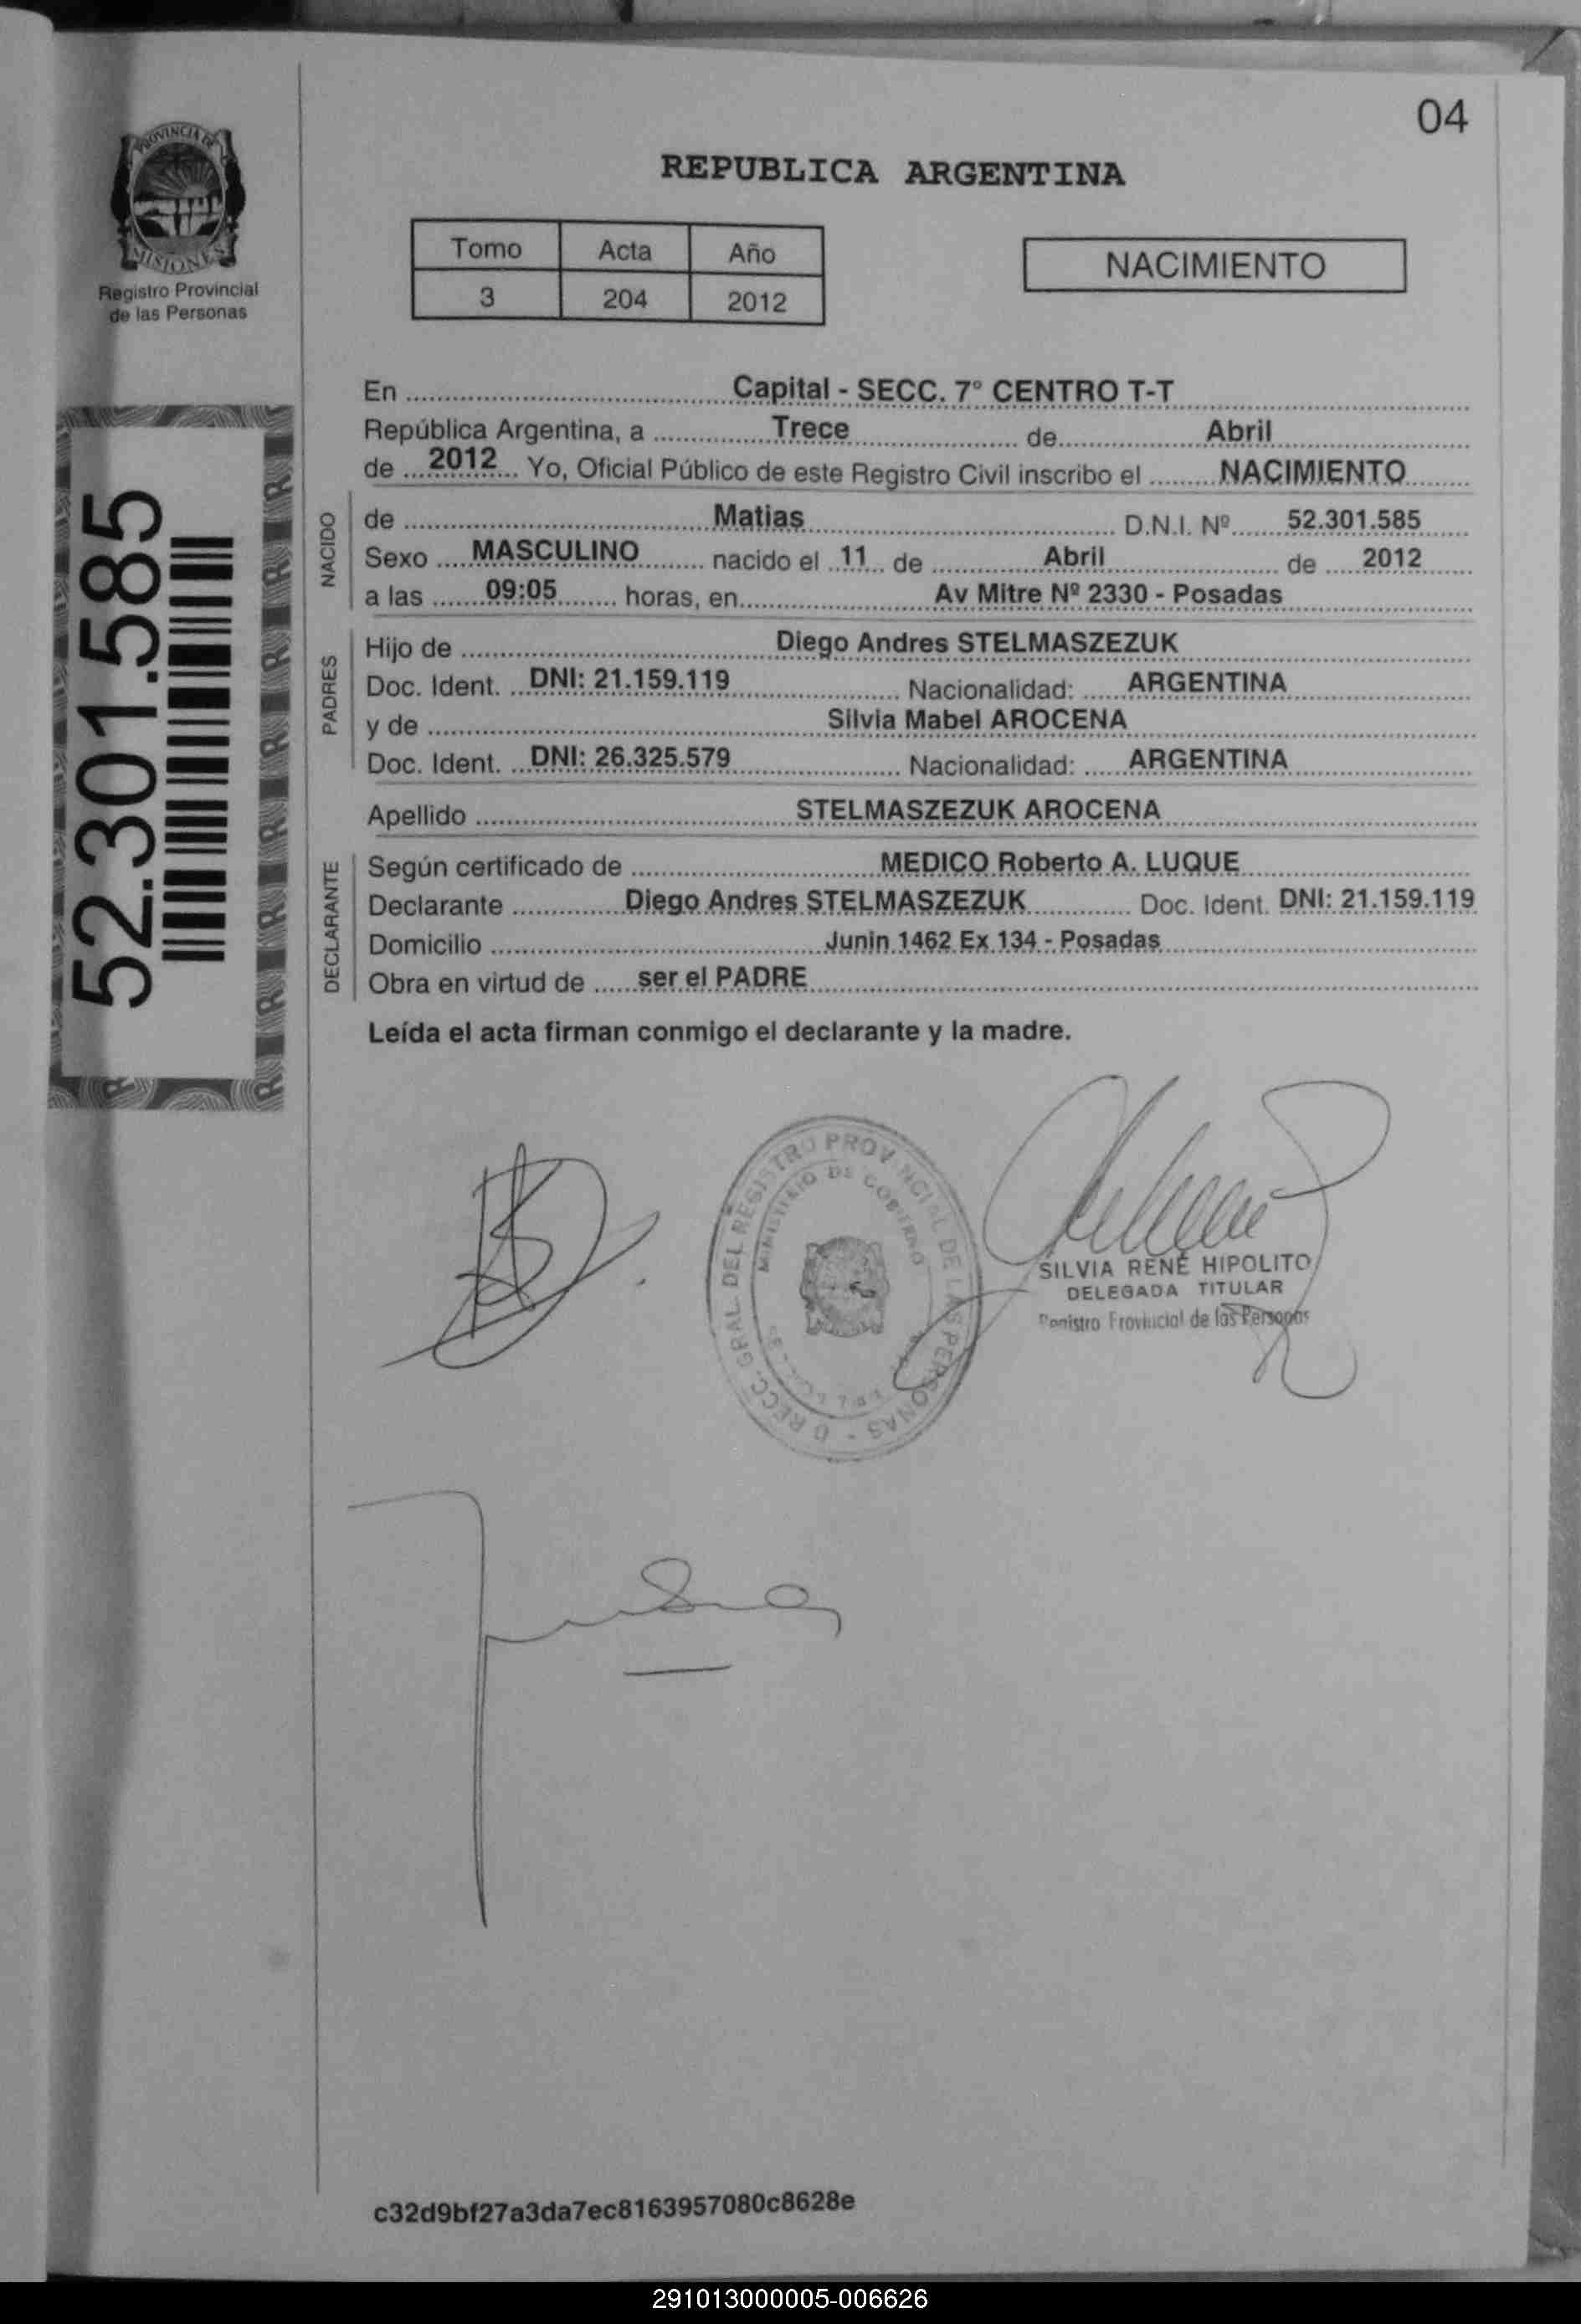 04
PROVINCIA DE
MISIONES
Registro Provincial
de las Personas
REPUBLICA ARGENTINA
Tomo Acta Año
3 204 2012
NACIMIENTO
52.301.585
En Capital - SECC. 7º CENTRO T-T
República Argentina, a Trece de Abril
de 2012 Yo, Oficial Público de este Registro Civil inscribo el NACIMIENTO
NACIDO
de Matias D.N.I. Nº 52.301.585
Sexo MASCULINO nacido el 11 de Abril de 2012
a las 09:05 horas, en Av Mitre Nº 2330 - Posadas
PADRES
Hijo de Diego Andres STELMASZEZUK
Doc. Ident. DNI: 21.159.119 Nacionalidad: ARGENTINA
y de Silvia Mabel AROCENA
Doc. Ident. DNI: 26.325.579 Nacionalidad: ARGENTINA
Apellido STELMASZEZUK AROCENA
DECLARANTE
Según certificado de MEDICO Roberto A. LUQUE
Declarante Diego Andres STELMASZEZUK Doc. Ident. DNI: 21.159.119
Domicilio Junin 1462 Ex 134 - Posadas
Obra en virtud de ser el PADRE
Leída el acta firman conmigo el declarante y la madre.
DIRECC. GRAL. DEL REGISTRO PROVINCIAL DE LAS PERSONAS
MINISTERIO DE GOBIERNO
SILVIA RENÉ HIPOLITO
DELEGADA TITULAR
Registro Provincial de las Personas
c32d9bf27a3da7ec8163957080c8628e
291013000005-006626